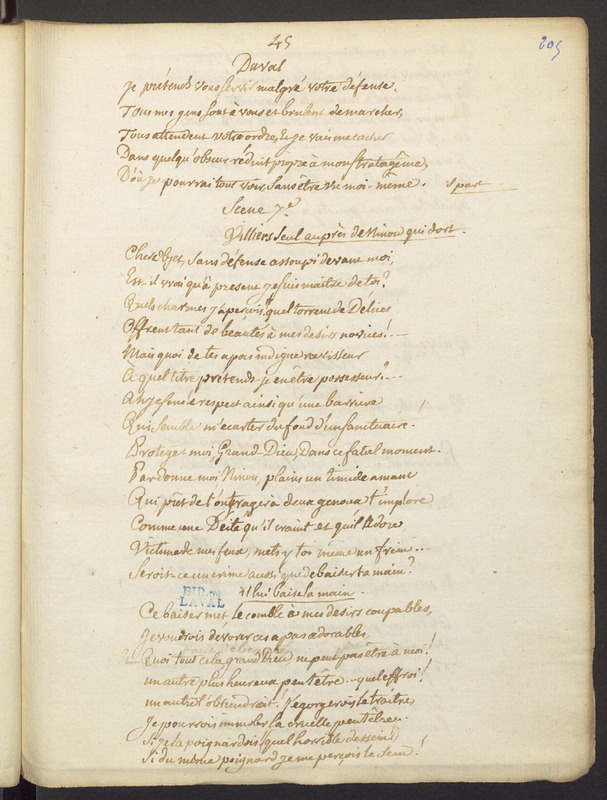 45
205
Duval
Je prétends vous servir malgré votre défense.
Tous mes gens sont à vous et brulent de marcher,
Tous attendent votre ordre, et je vais me cacher
Dans quelqu'obscur réduit propre à mon stratagême,
D'où je pourrai tout voir, sans être vu moi-même. Il part
Scene 7.e
Villiers seul auprès de Ninon qui dort.
Cher objet, sans défense assoupi devant moi,
Est-il vrai qu'à present je suis maitre de toi?
Quels charmes j'aperçois! quel torrent de Délices
Offrent tant de beautés à mes desirs novices!
Mais quoi de tes apas indigne ravisseur
À quel titre prétends-je en être possesseur?...
Ah je sens le respect ainsi qu'une barriere
Qui semble m'ecarter du fond d'un sanctuaire.
Protegez moi, Grand-Dieu, Dans ce fatal moment.
Pardonne moi Ninon, plains un timide amant
Qui prêt de t'outrager à deux genoux t'implore
Comme une Déité qu'il craint et qu'il Adore
Victime de mes feux, mets y toi même un frein...
Seroit-ce un crime aussi que de baiser ta main?
Il lui baise la main.
BIB. DE
LAVAL
Ce baiser met le comble à mes desirs coupables,
Je voudrois devorer ces apas adorables
Quoi tout cela grand Dieu ne peut pas être à moi!
un autre plus heureux peut être... quel effroi!
un autre l'obtiendroit! J'egorgerois le traitre,
Je pourrois immoler la cruelle peut être...
Si je la poignardois (quel horrible dessein!)
Si du même poignard je me perçois le sein!